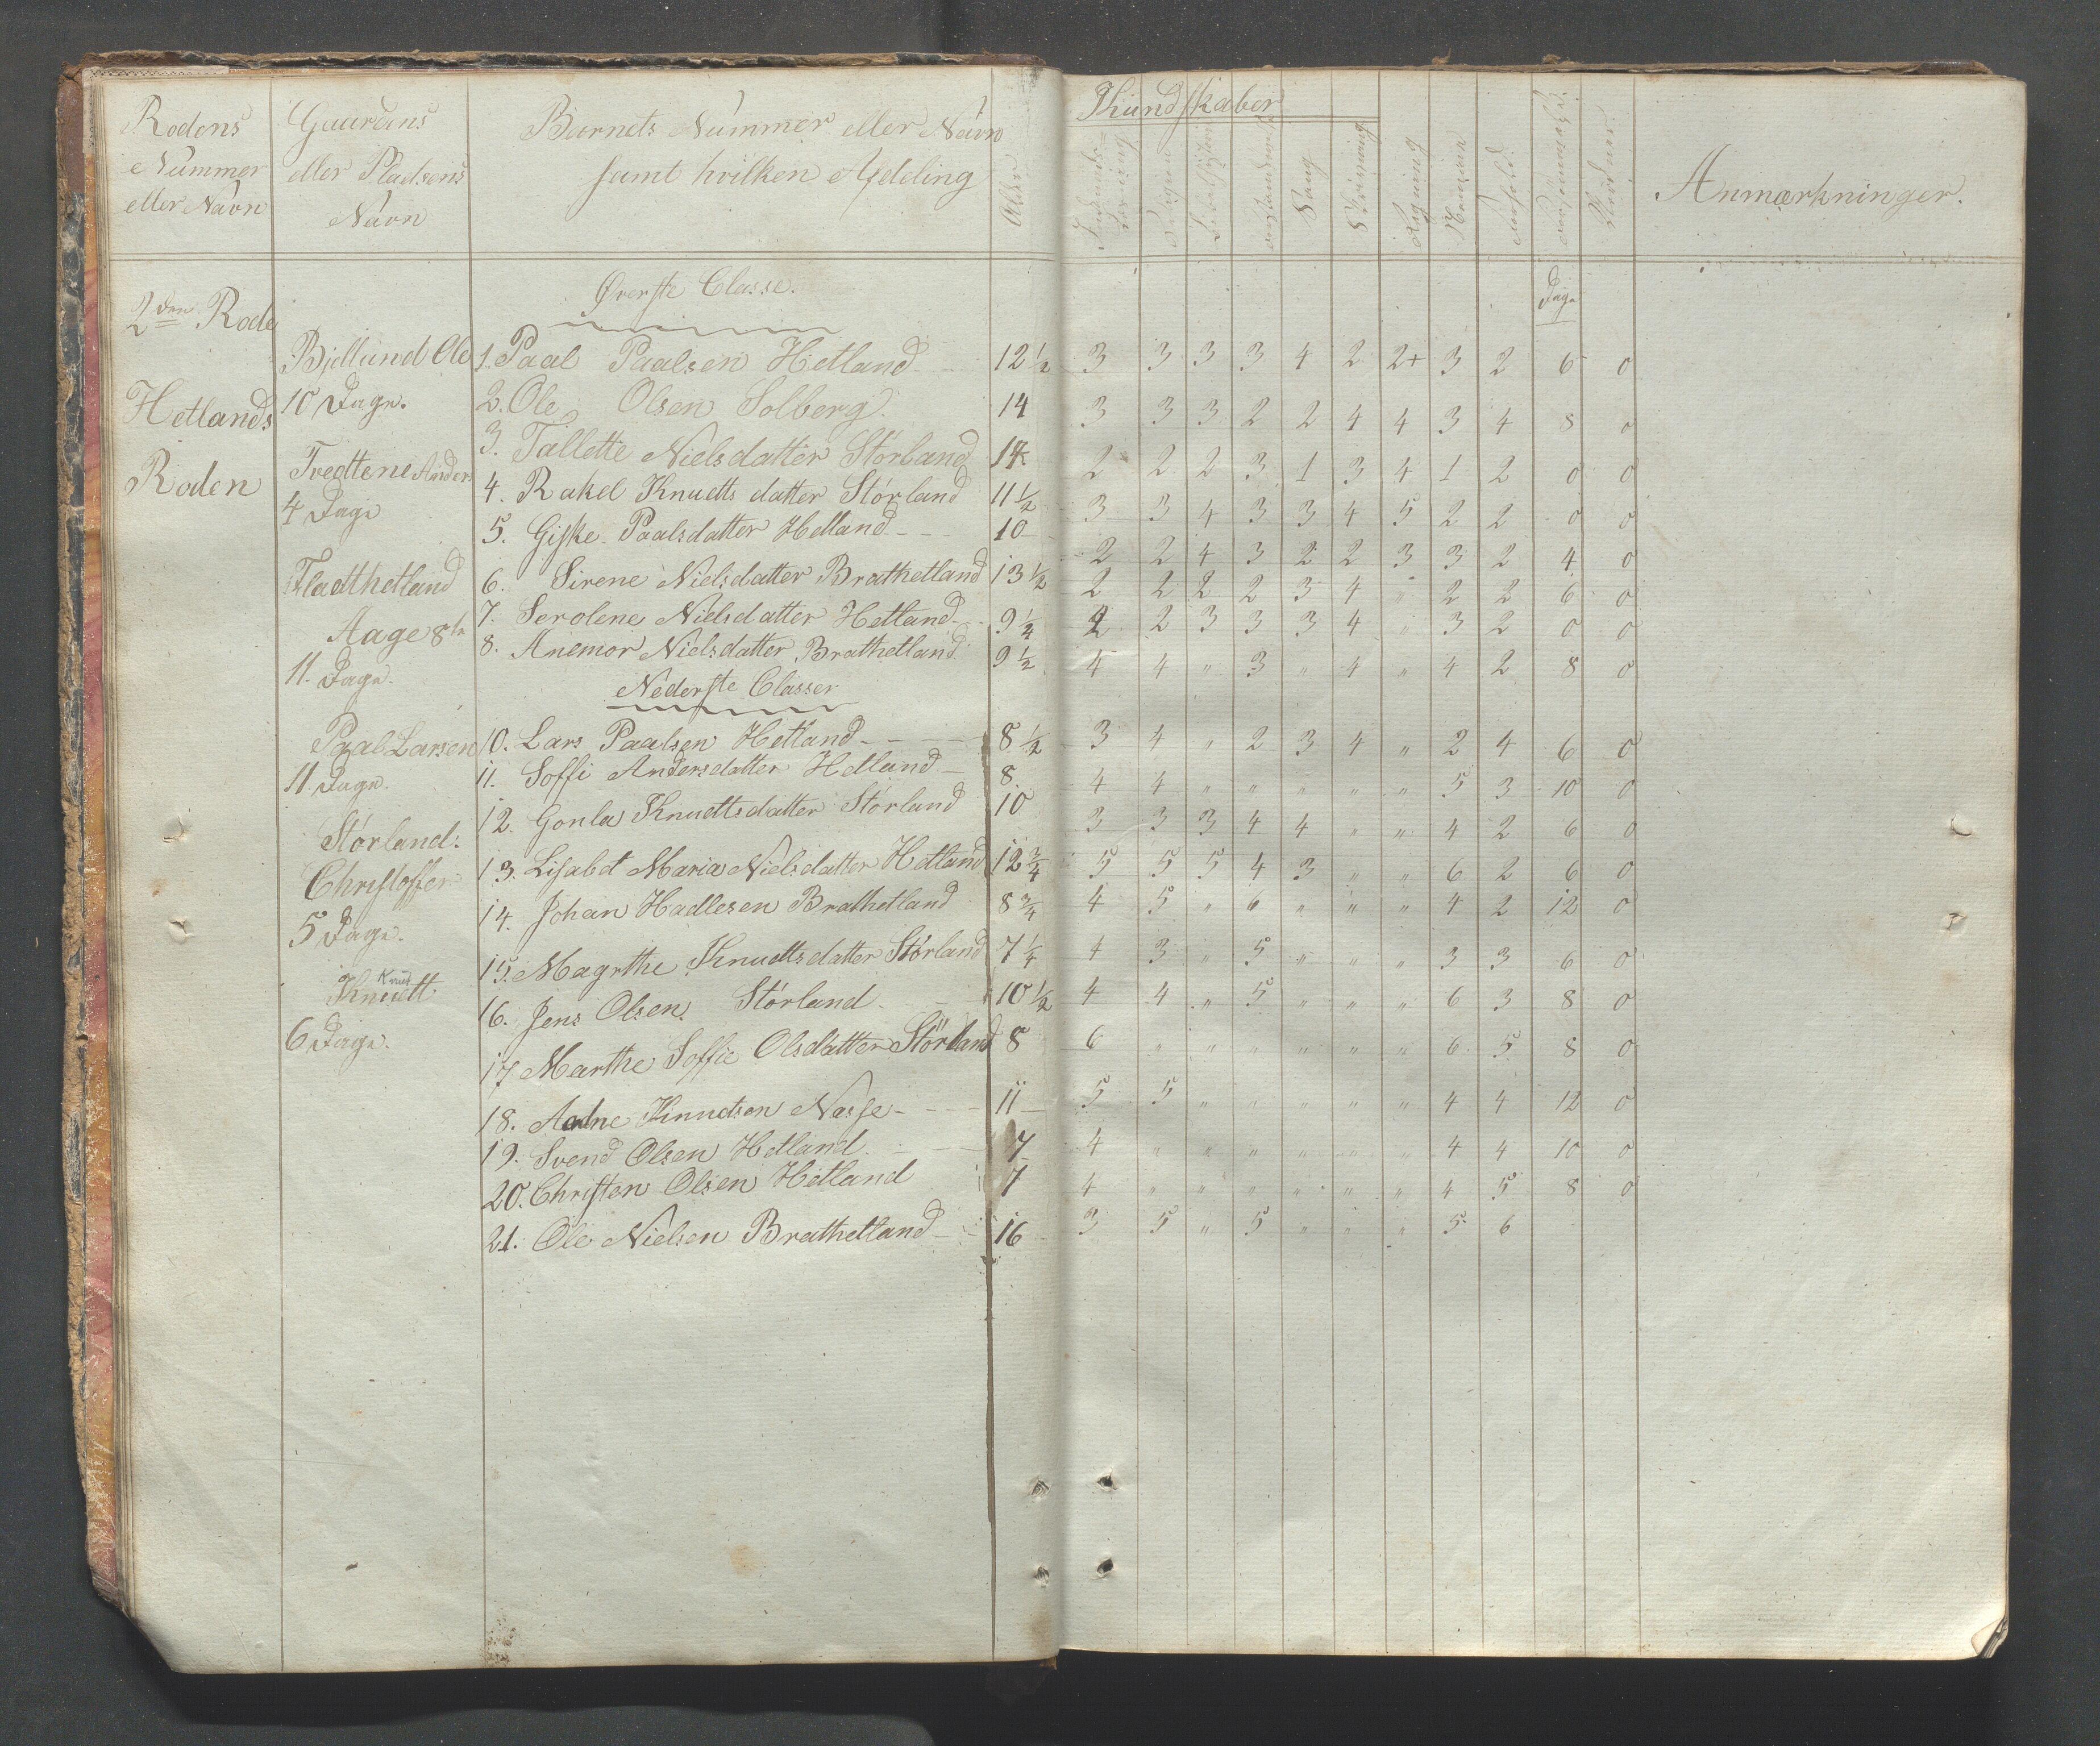 Rodens Nummer eller Navn
Gaardens eller Pladsens Navn
Barnets Nummer eller Navn samt hvilken Afdeling
Alder
Khundskaber
Religion
Sang
Skrivning
Regning
Anmærkninger.
2den Rode
Hetlands
Roden
Bjellund Ole
10 Dage.
Tvedtene Anders
4 Dage
Fladthetland
Aage 8te
11. Dage.
Paal Larsen
11 Dage.
Störland:
Christoffer
5 Dage.
Knud
Knudtt
6 Dage.
Øverste Classe.
Dage
1. Paal Paalsen Hetland 12 1/2 3 3 3 3 4 2 2+ 3 2 6 0
2. Ole Olsen Solberg. 14 3 3 3 2 2 4 4 3 4 8 0
3. Tallette Nielsdatter Störland 14 2 2 2 3 1 3 4 1 2 0 0
4. Rakel Knudtts datter Störland 11 1/2 3 3 4 3 3 4 5 2 2 0 0
5. Giske Paalsdatter Hetland - - - 10 2 2 4 3 2 2 3 3 2 4 0
6. Sirene Nielsdatter Brathetland 13 1/2 2 2 2 2 3 4 " 2 2 6 0
7. Serolene Nielsdatter Hetland 9 1/4 2 2 3 3 3 4 " 3 2 0 0
8. Anemor Nielsdatter Brathetland 9 1/2 4 4 " 3 " 4 " 4 2 8 0
Nederste Classer
10. Lars Paalsen Hetland - - - 8 1/2 3 4 " 2 3 4 " 2 4 6 0
11. Soffi Andersdatter Hetland - 8. 4 4 " " " " " 5 3 10 0
12. Gonla Knudttsdatter Störland 10 3 3 3 4 4 " " 4 2 6 0
13. Lisabet Maria Nielsdatter Hetland 12 3/4 5 5 5 4 3 " " 6 2 6 0
14. Johan Hadlesen Brathetland 8 3/4 4 5 " 6 " " " 4 2 12 0
15. Magrthe Knudttsdatter Störland 7 1/4 4 3 " 5 " " " 3 3 6 0
16. Jens Olsen. Störland 10 1/2 4 4 " 5 " " " 6 3 8 0
17 Marthe Soffie Olsdatter Störland 8 6 " " " " " " 6 5 8 0
18. Aadne Knudsen Nasse - - - 11 5 5 " " " " " 4 4 12 0
19. Svend Olsen Hetland. - - 7 4 " " " " " " 4 4 10 0
20. Christen Olsen Hetland 7 4 " " " " " " 4 5 8 0
21. Ole Nielsen Brathetland - 16 3 5 " 5 " " " 5 6